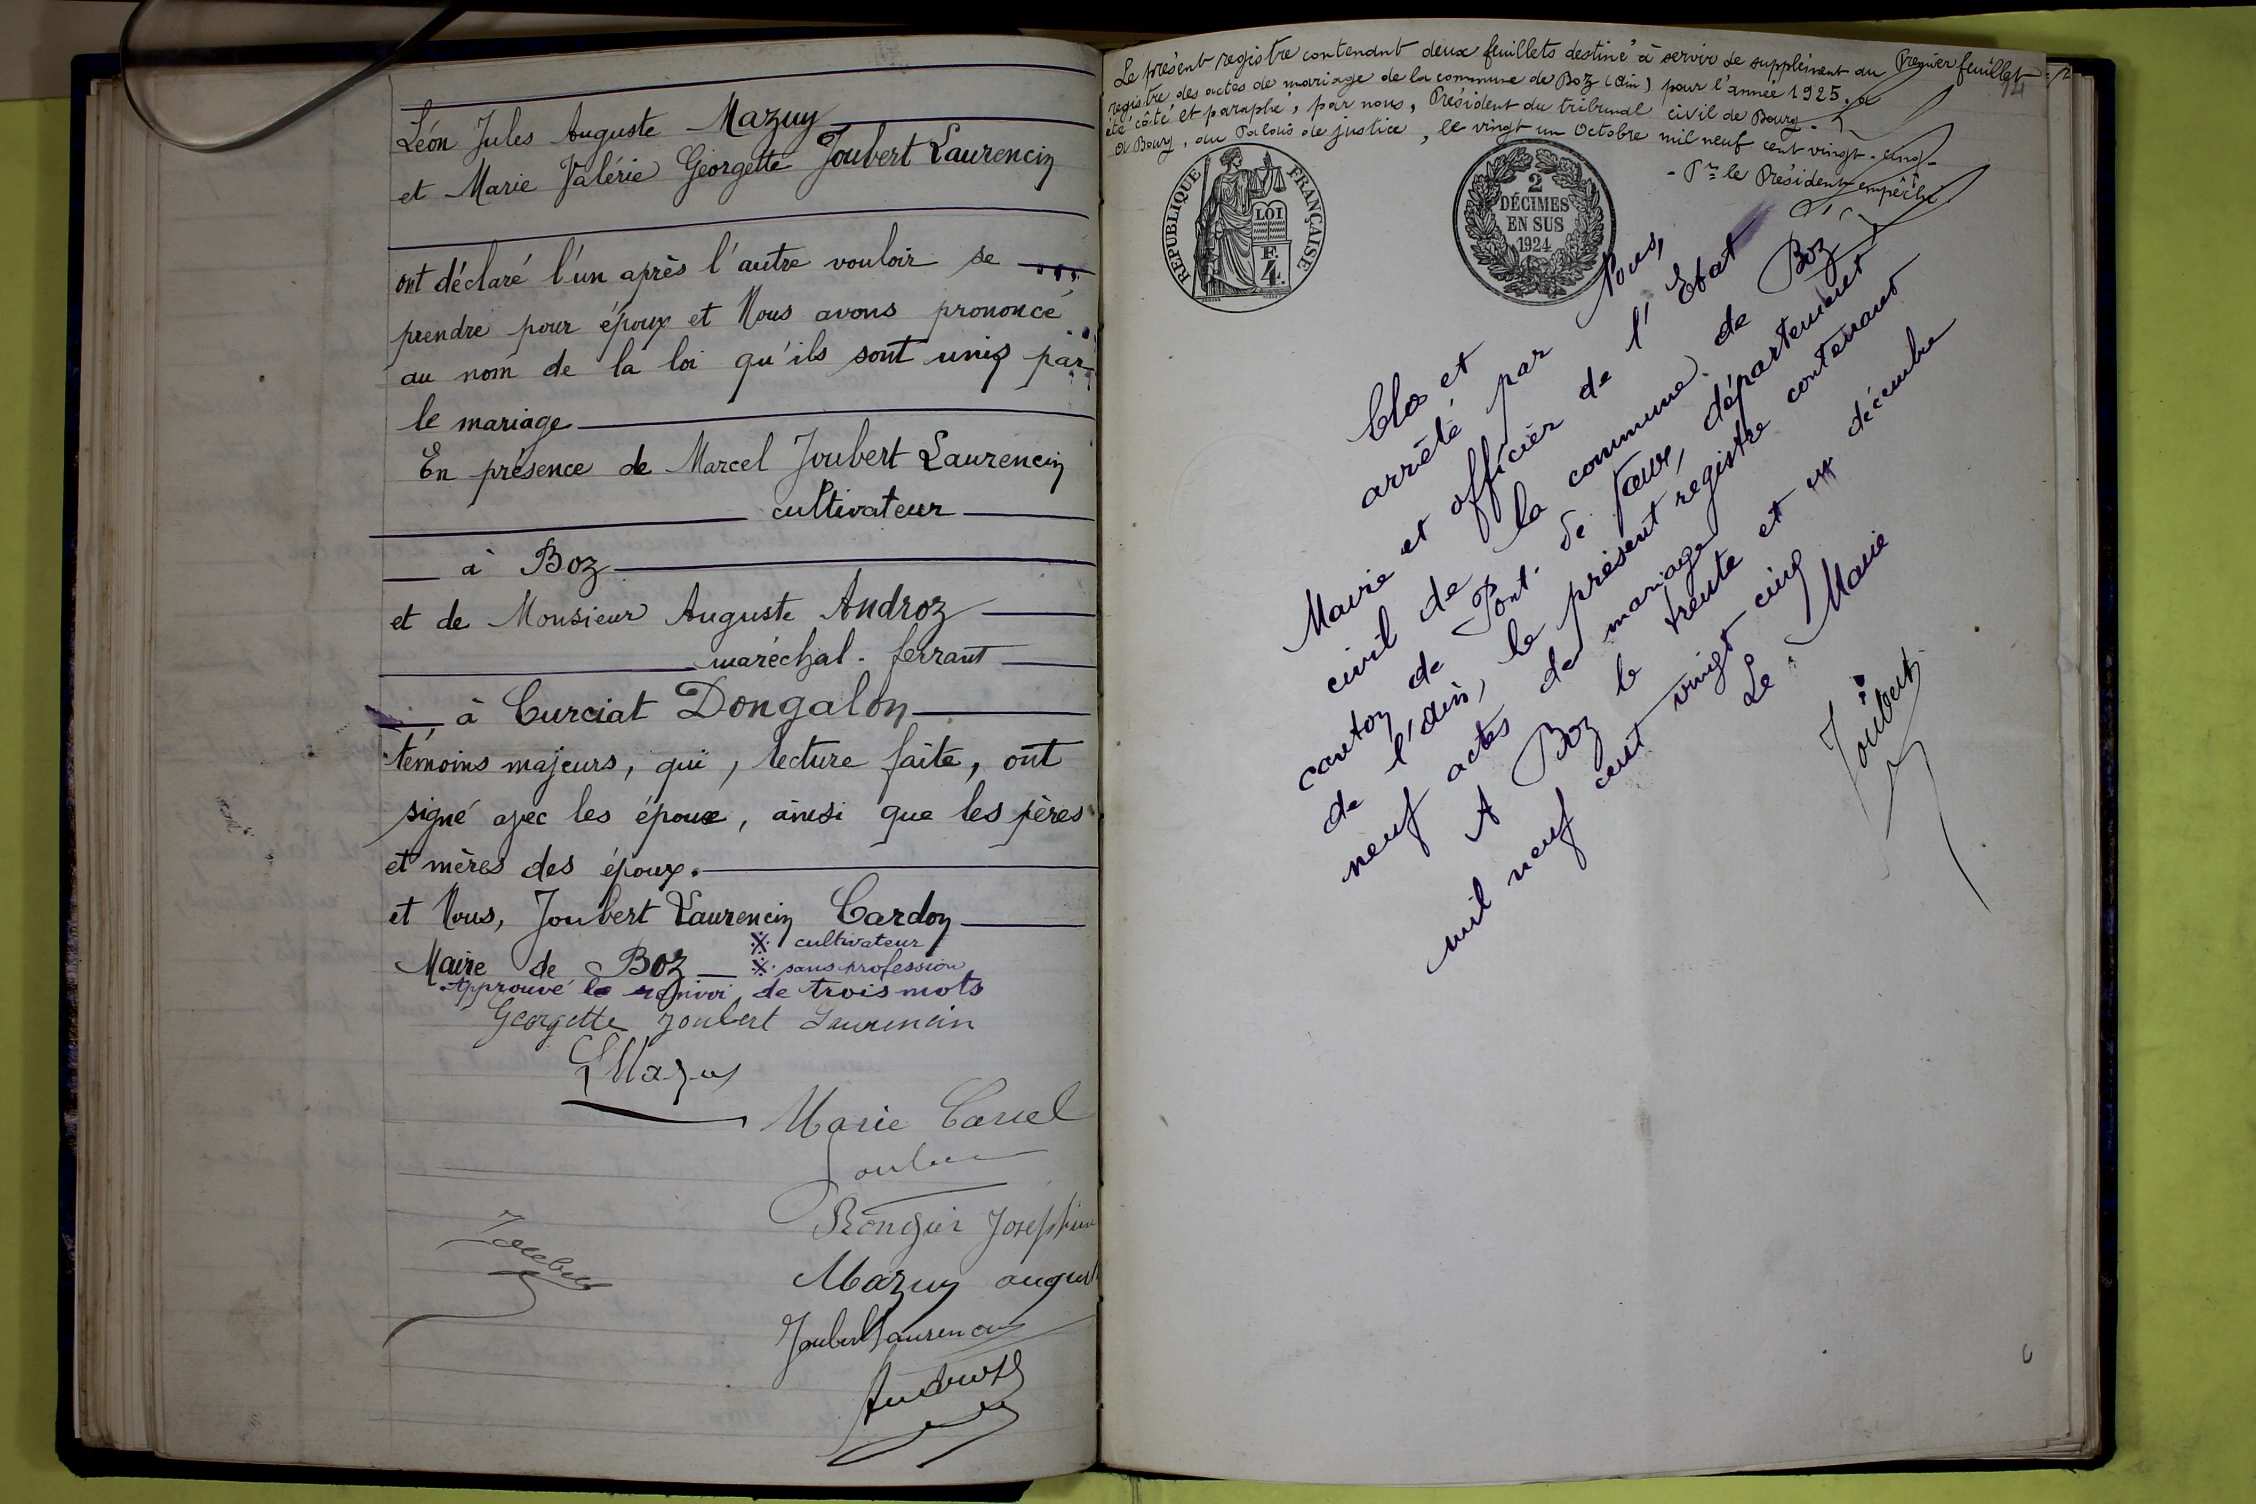 Léon Jules Auguste Mazuy
et Marie Valérie Georgette Joubert Laurencin
ont déclaré l'un après l'autre vouloir se
prendre pour époux et Nous avons prononcé
au nom de la loi qu'ils sont unis par
le mariage
En présence de Marcel Joubert Laurencin
cultivateur
à Boz
et de Monsieur Auguste Androz
maréchal-ferrant
à Curciat Dongalon
témoins majeurs, qui, lecture faite, ont
signé avec les époux, ainsi que les pères
et mères des époux.
et Nous, Joubert Laurencin Cardon
※ cultivateur
Maire de Boz ※ sans profession
Approuvé le renvoi de trois mots
Georgette Joubert Laurencin
Mazuy
Marie Carrel
Joubert
Josephine
Mazuy august
Joubert Laurencin
Androz
Le présent registre contenant deux feuillets destiné à servir de supplément au Premier feuillet
registre des actes de mariage de la commune de Boz (Ain) pour l'année 1925. a
été côté et paraphé, par nous, Président du tribunal civil de Bourg.
à Bourg, au Palais de justice, le vingt un Octobre mil neuf cent vingt-cinq-
- Pr le Président empêché
RÉPUBLIQUE FRANÇAISE
LOI
F.
4.
2
DÉCIMES
EN SUS
1924
Clos et
arrêté par Nous,
Maire et officier de l'Etat
civil de la commune de Boz
canton de Pont-de Vaux, département
de l'Ain, le présent registre contenant
neuf actes de mariage
A Boz le trente et un décembre
mil neuf cent vingt cinq
Le Maire
Joubert